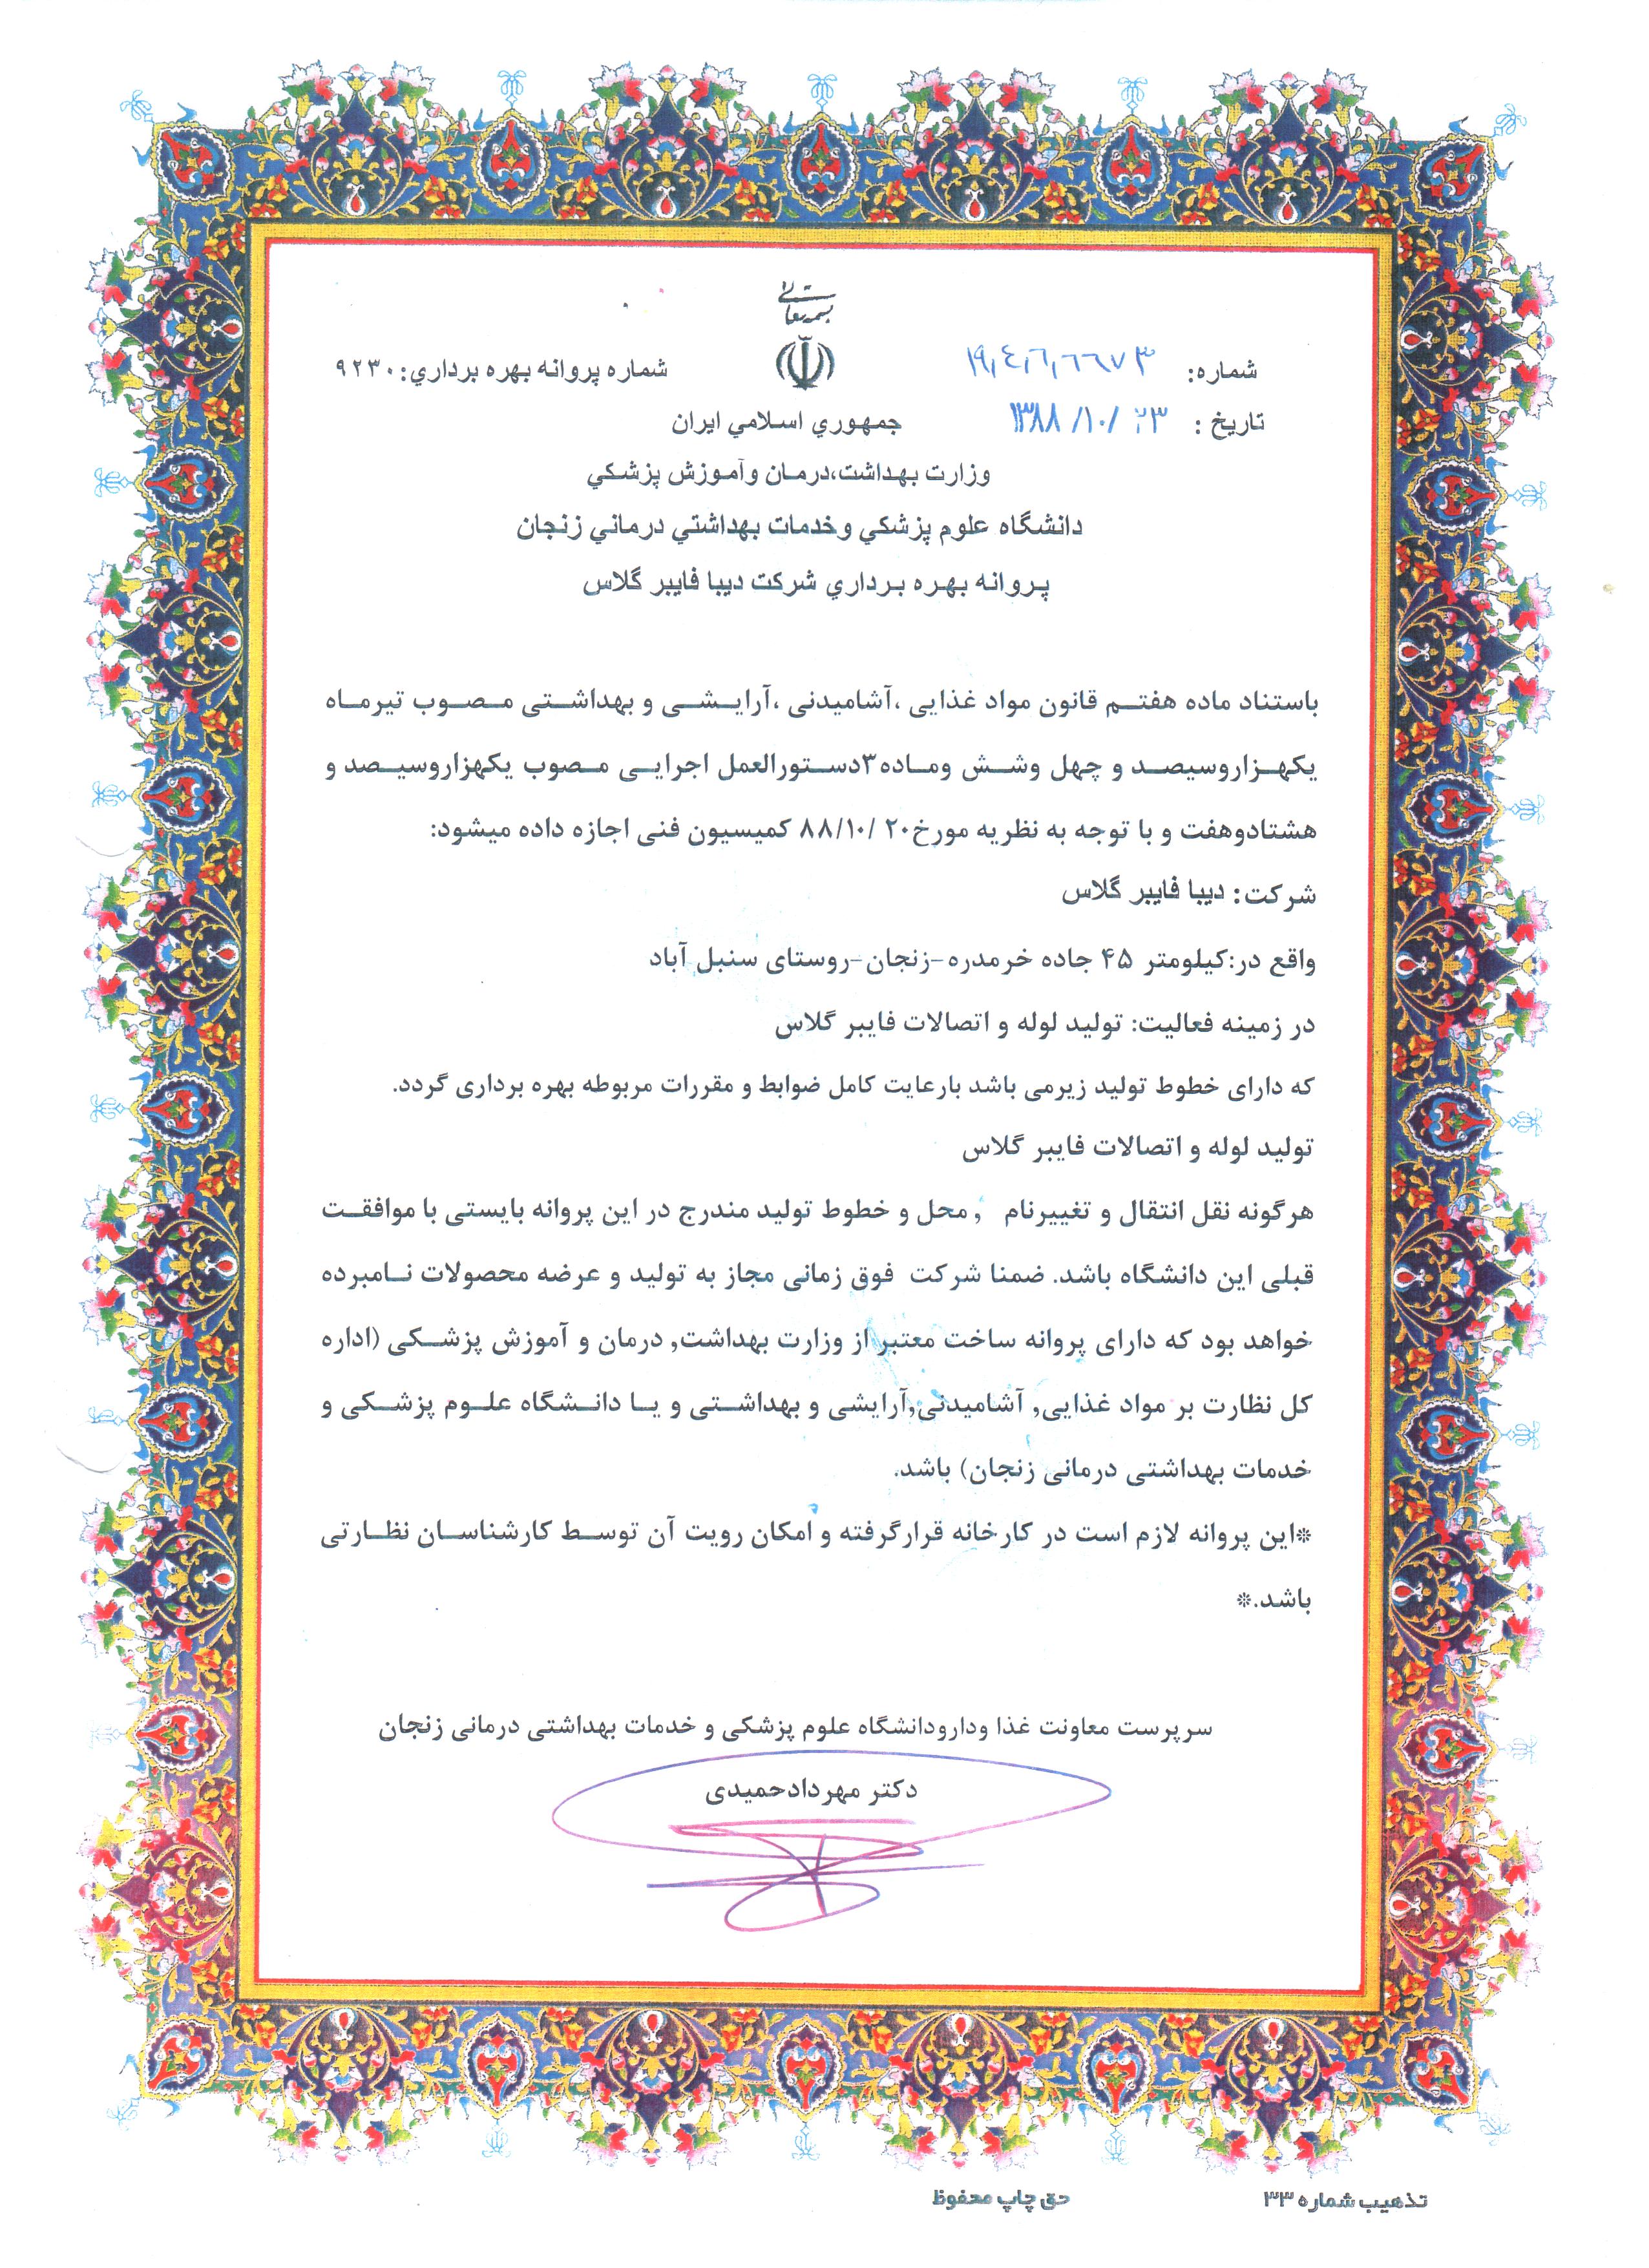 بسمه تعالی
شماره: ۱۹٫۴٫۶٫۶۶۷۳
شماره پروانه بهره برداري: ۹۲۳۰
تاریخ : ۱۳۸۸/۱۰/۲۳
جمهوري اسلامي ایران
وزارت بهداشت،درمان وآموزش پزشكي
دانشگاه علوم پزشكي وخدمات بهداشتي درماني زنجان
پروانه بهره برداري شركت دیبا فایبر گلاس
باستناد ماده هفتم قانون مواد غذایی ،آشامیدنی ،آرایشی و بهداشتی مصوب تیرماه
یکهزاروسیصد و چهل وشش وماده۳دستورالعمل اجرایی مصوب یکهزاروسیصد و
هشتادوهفت و با توجه به نظریه مورخ۲۰ /۸۸/۱۰ کمیسیون فنی اجازه داده میشود:
شرکت: دیبا فایبر گلاس
واقع در:کیلومتر ۴۵ جاده خرمدره-زنجان-روستای سنبل آباد
در زمینه فعالیت: تولید لوله و اتصالات فایبر گلاس
که دارای خطوط تولید زیرمی باشد بارعایت کامل ضوابط و مقررات مربوطه بهره برداری گردد.
تولید لوله و اتصالات فایبر گلاس
هرگونه نقل انتقال و تغییرنام , محل و خطوط تولید مندرج در این پروانه بایستی با موافقت
قبلی این دانشگاه باشد. ضمنا شرکت فوق زمانی مجاز به تولید و عرضه محصولات نامبرده
خواهد بود که دارای پروانه ساخت معتبر از وزارت بهداشت, درمان و آموزش پزشکی (اداره
کل نظارت بر مواد غذایی, آشامیدنی,آرایشی و بهداشتی و یا دانشگاه علوم پزشکی و
خدمات بهداشتی درمانی زنجان) باشد.
*این پروانه لازم است در کارخانه قرارگرفته و امکان رویت آن توسط کارشناسان نظارتی
باشد.*
سرپرست معاونت غذا ودارودانشگاه علوم پزشکی و خدمات بهداشتی درمانی زنجان
دکتر مهردادحمیدی
تذهیب شماره ۳۳
حق چاپ محفوظ